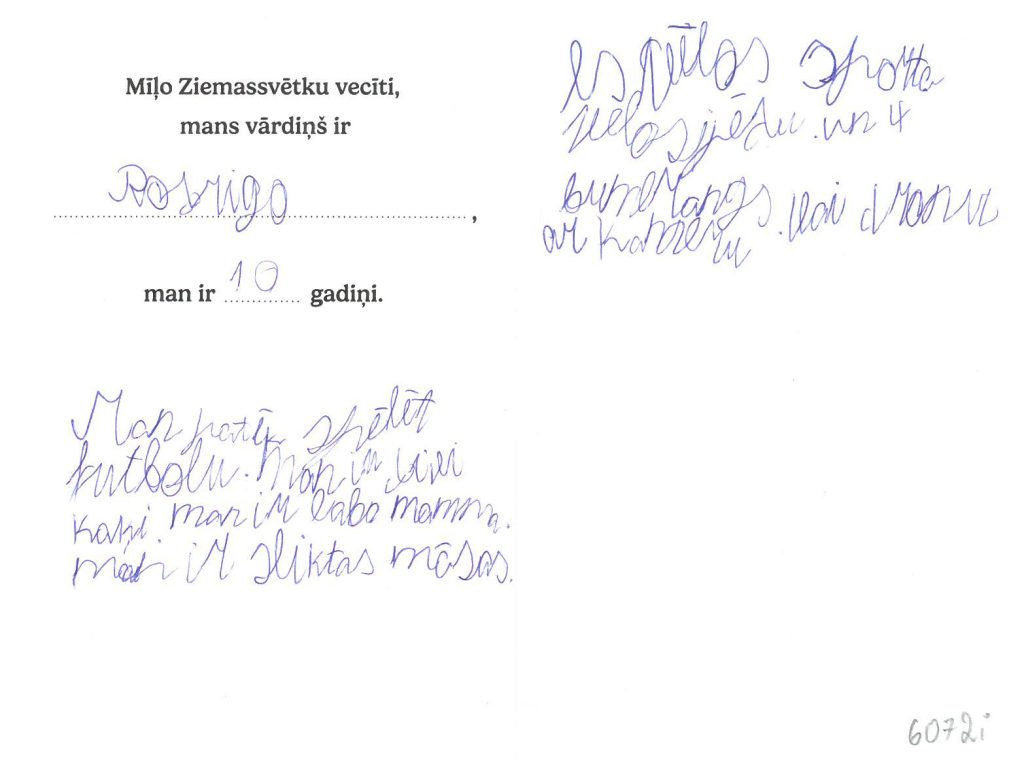 Mīļo Ziemassvētku vecīti,
mans vārdiņš ir
Rodrigo,
man ir 10 gadiņi.
Man patīk spēlēt
futbolu. Man ir divi
kaķi. man ir laba mamma.
man ir sliktas māsas.
Es vēlos sporta
velosipēdu. un 4
bumerangs vai dronu
ar kameru.
6072i